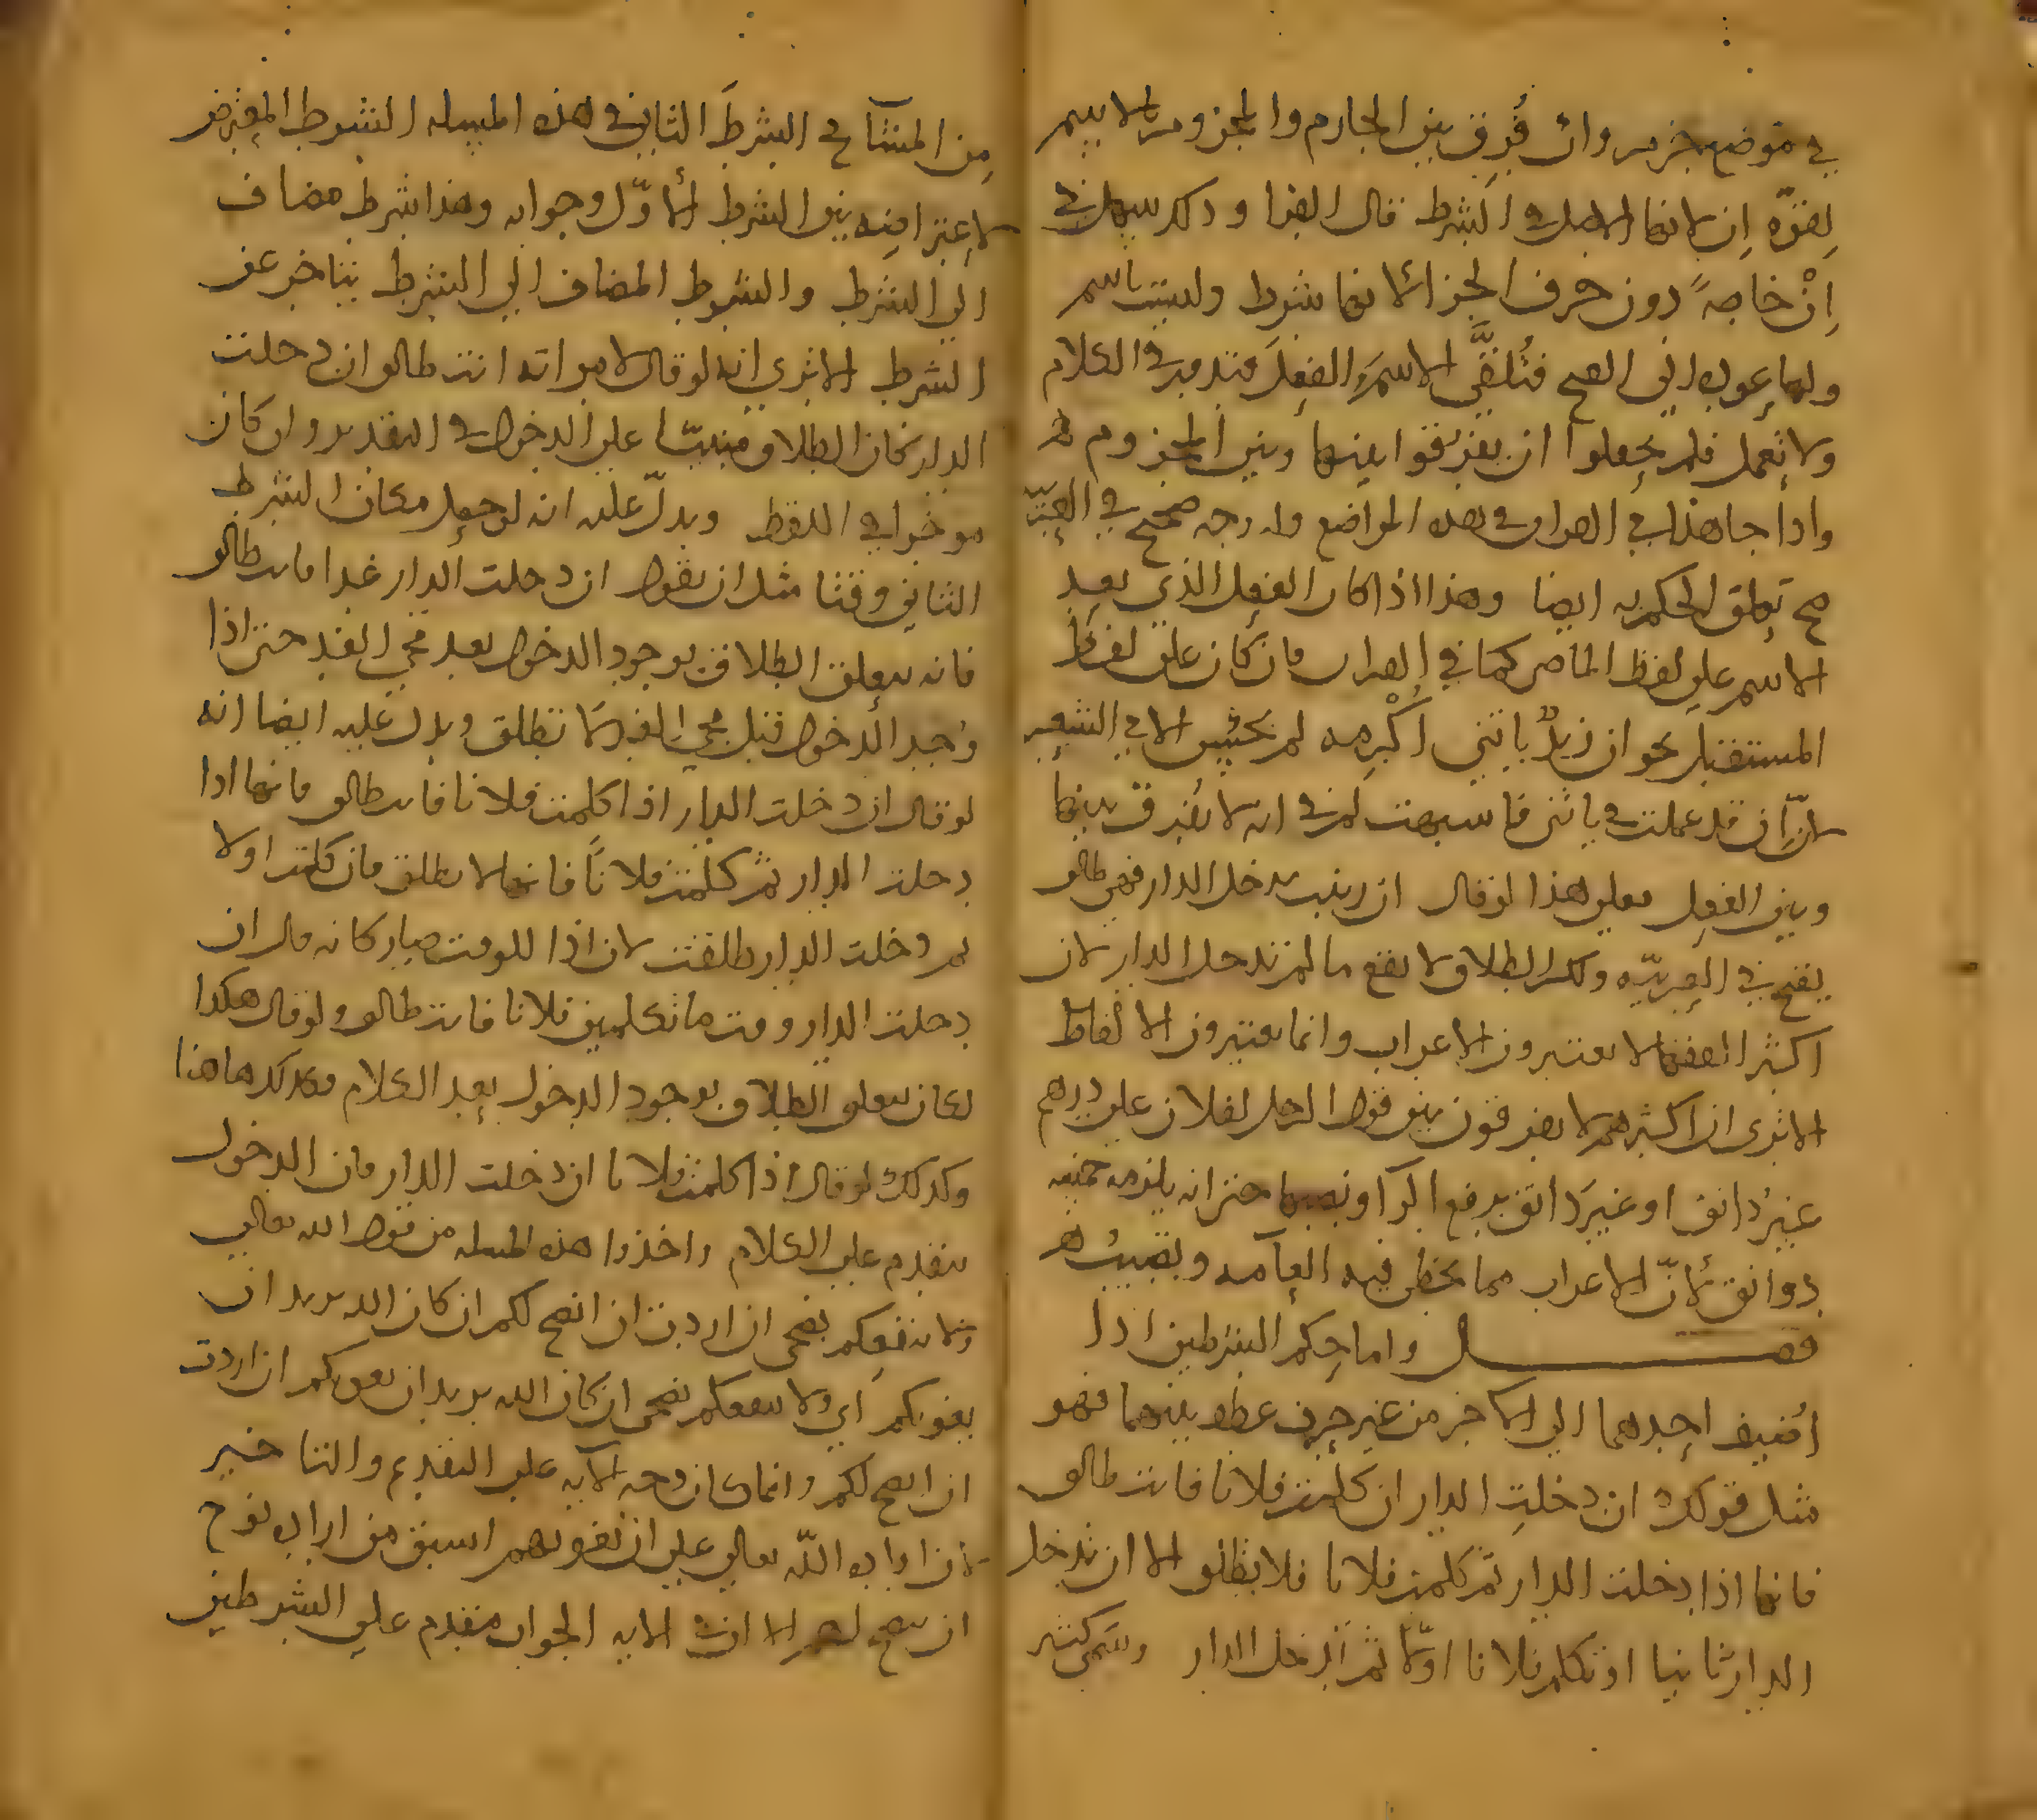 في موضع جزم وان فرق بين الجازم والمجزوم بالاسم
لقوة إن لانها الاصل في الشرط قال الفرا وذلك سهل في
إنْ خاصةً دون حرف الجزا لانها شرط وليست باسم
ولها عودة الى الفتح فتُلقَّى الاسمَ والفعل وتدور في الكلام
ولا تعمل فلم يحفلوا ان يفرقوا بينها وبين المجزوم
واذا جا هذا في القران في هذه المواضع وله وجه صحيح في العربيّة
صح تعلق الحكم به ايضا وهذا اذا كان الفعل الذي بعد
الاسم على لفظ الماضي كما في القران فان كان على لفظ
المستقبل نحو ان زيدٌ ياتني أُكْرِمه لم يحسن الا في الشعر
لانّ إن قد عملت في ياتني فاشبهت لم في انه لا يفرق بينها
وبين الفعل فعلى هذا لو قال ان زينب تدخل الدار فهي طالق
يقبح في العربيّه ولكن الطلاق لا يقع ما لم تدخل الدار لان
اكثر الفقها لا يعتبرون الاعراب وانما يعتبرون الالفاظ
الا ترى ان اكثرهم لا يفرقون بين قول الرجل لفلان علي درهم
غيرُ دانق او غيرَ دانق برفع الرا ونصبها حتى انه يلزمه خمسه
دوانق لأنّ الاعراب مما يخطي فيه العامه ويصيب
فصل واما حكم الشرطين اذا
أضيف احدهما الى الاخر من غير حرف عطف بينهما فهو
مثل قولك ان دخلتِ الدار ان كلمت فلانا فانت طالق
فانها اذا دخلت الدار ثم كلمت فلانا فلا تطلق الا ان تدخل
الدار ثانيا او تكلم فلانا اوّلا ثم تدخل الدار وسمى كثير
مِن المشآيخ الشرطَ الثاني في هذه المسئله الشرط المعترض
لاعتراضه بين الشرط الأوّل وجوابه وهذا شرط مضاف
الى الشرط والشرط المضاف الى الشرط يتاخر عن
الشرط الا ترى انه لو قال لامراته انت طالق ان دخلت
الدار كان الطلاق مبنيّا على الدخول في التقدير وان كان
موخرا في اللفظ ويدلّ عليه انه لو جعل مكان الشرط
الثاني وقتا مثل ان يقول ان دخلت الدار غدا فانت طالق
فانه يتعلق الطلاق بوجود الدخول بعد مجي الغد حتى اذا
وُجد الدخول قبل مجي الغد لا تطلق ويدل عليه ايضا انه
لو قال ان دخلت الدار اذا كلمت فلانا فانت طالق فانها اذا
دخلت الدار ثم كلمت فلاناً فانها لا تطلق فان كلمت اولا
ثم دخلت الدار طلقت لان اذا للوقت صار كانه قال ان
دخلت الدار وقت ما تكلمين فلانا فانت طالق ولو قال هكذا
لكان يتعلق الطلاق بوجود الدخول بعد الكلام فكذلك هاهنا
وكذلك لو قال اذا كلمت فلانا ان دخلت الدار فان الدخول
يتقدم على الكلام واخذوا هذه المسله من قول الله تعالى
ولا ينفعكم نصحي ان اردت ان انصح لكم ان كان الله يريد ان
يغويكم أي ولا ينفعكم نصحي ان كان الله يريد ان يغويكم ان اردت
ان انصح لكم وانما كان وجه الآيه على التقديم والتاخير
لان ارادة اللّه تعالى على ان يغويهم اسبق من ارادة نوح
ان ينصح لهم الا ان في الايه الجواب متقدم على الشرطين